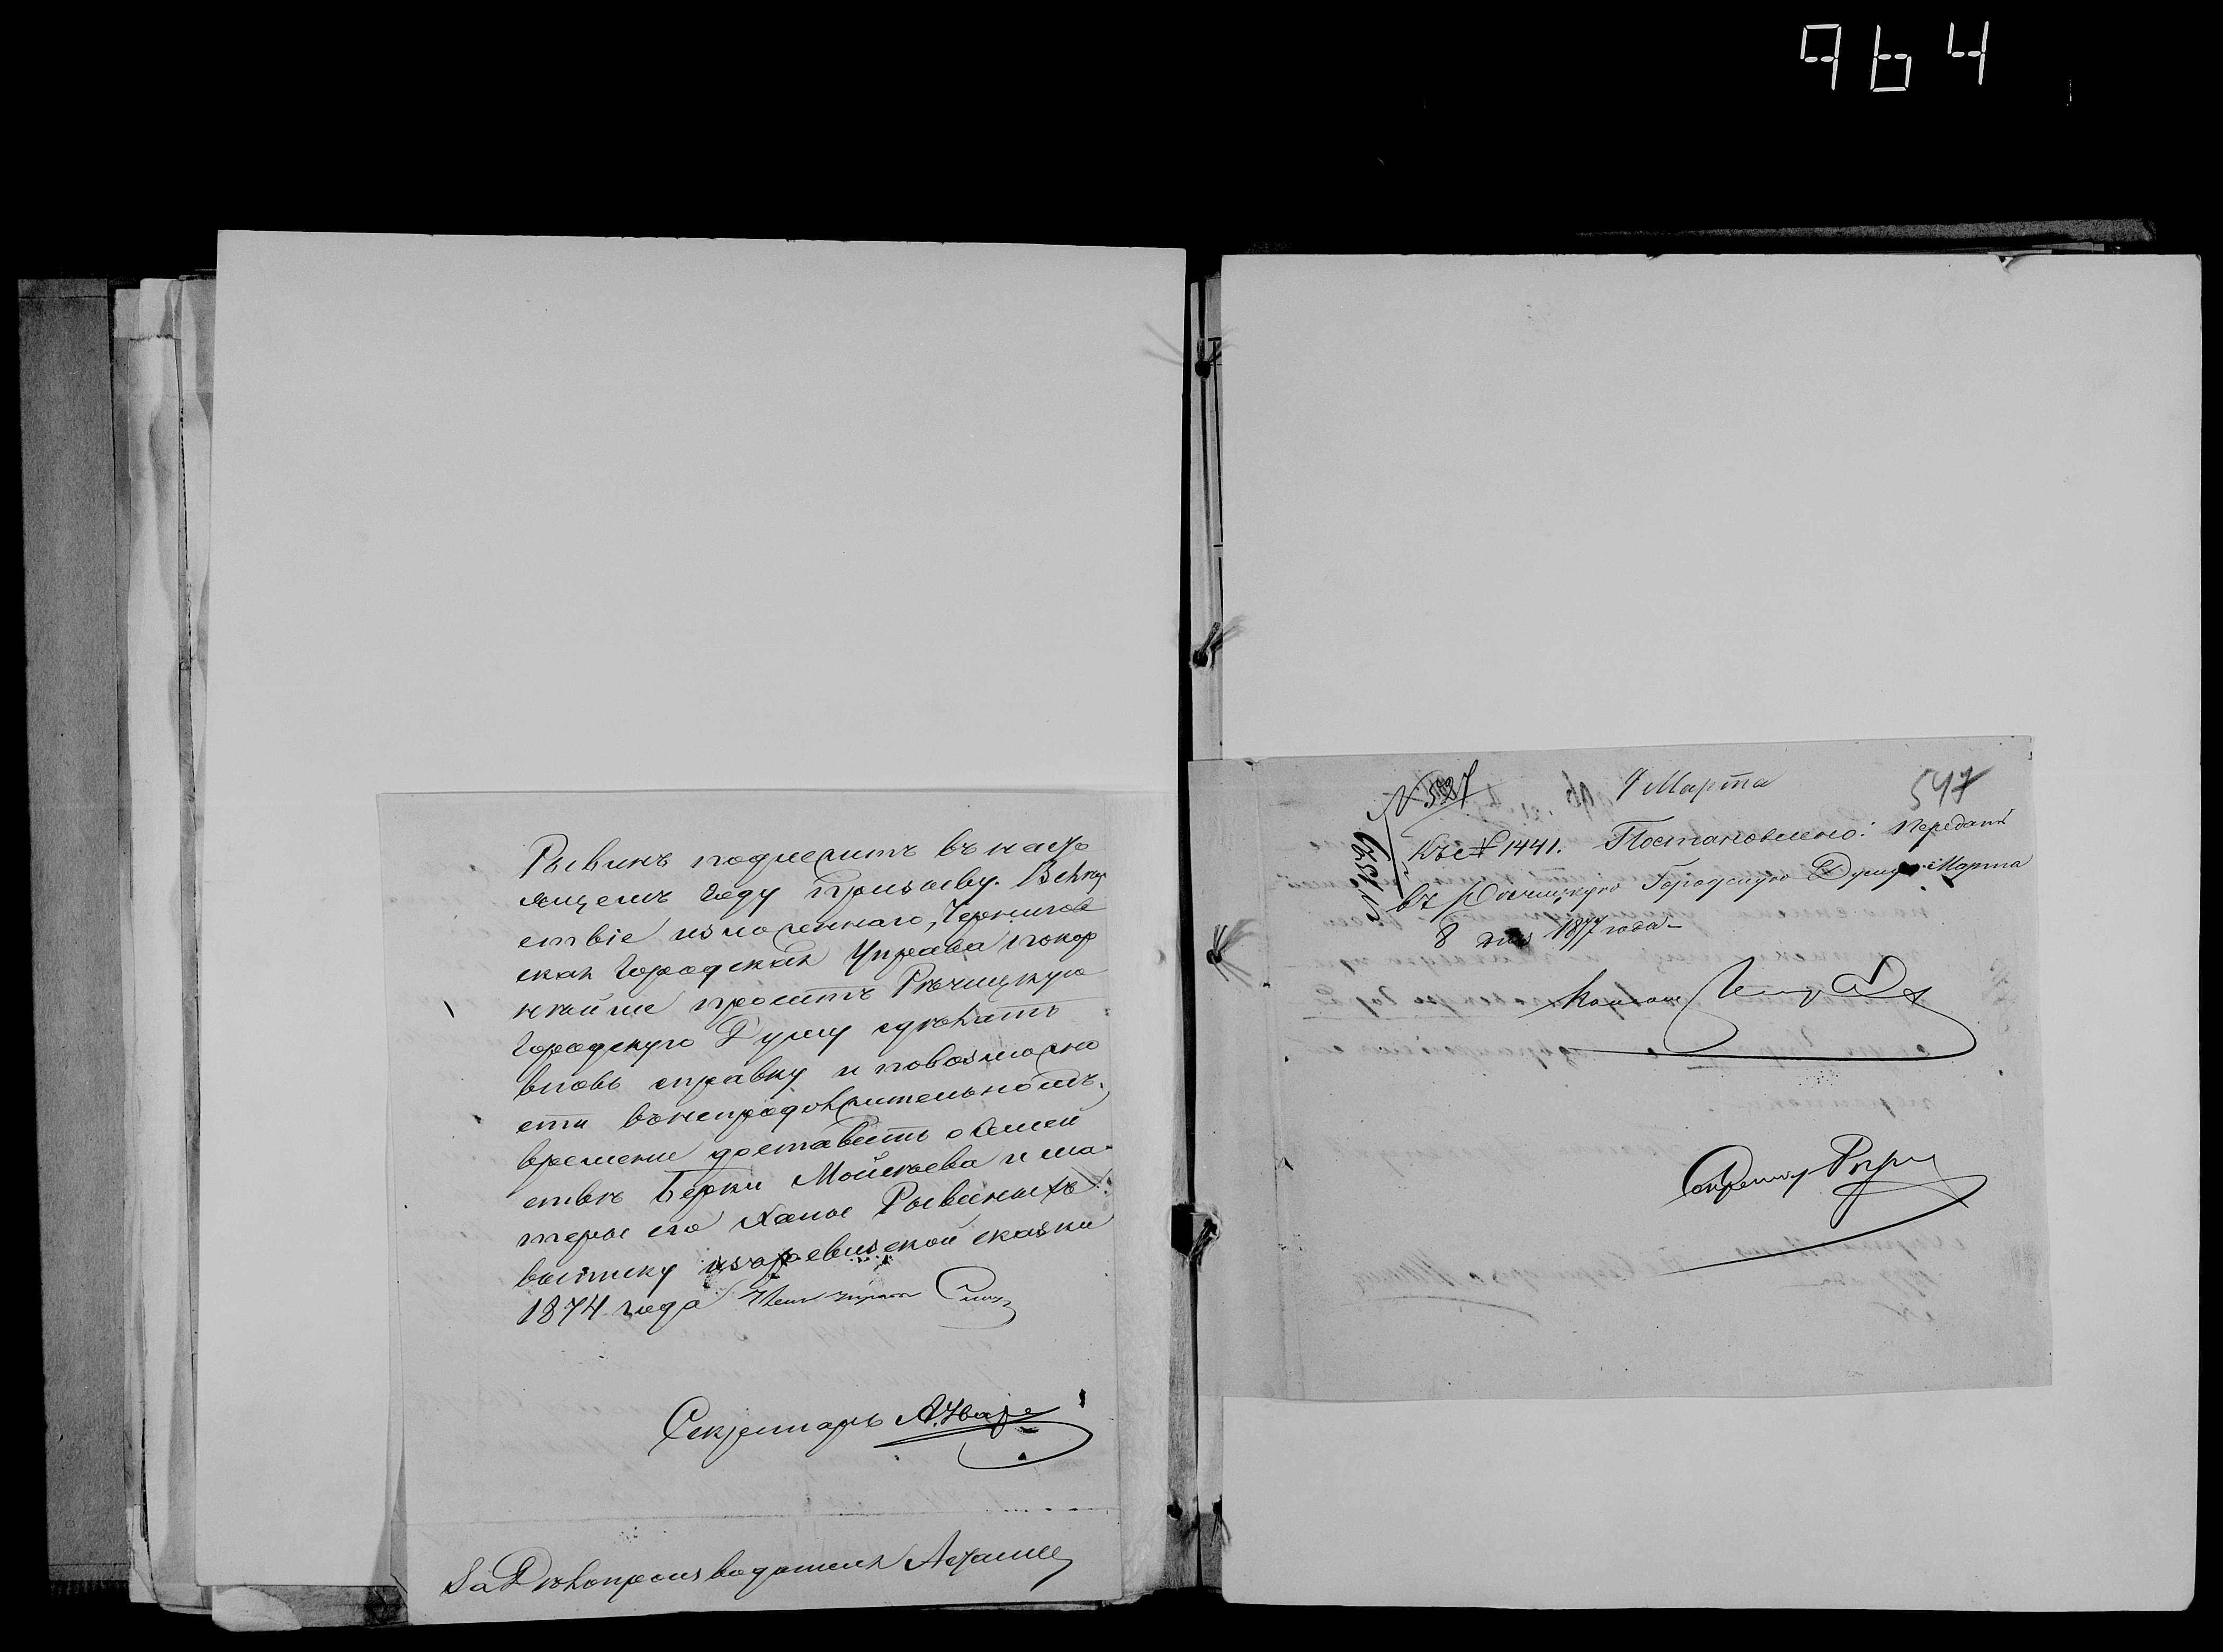 964
Рывинъ подлежитъ въ насто
ящемъ году призыву. Вслѣд
ствіе изложеннаго, Чернигов
ская Городская Управа покор
нѣйше проситъ Рѣчицкую
Городскую Думу сдѣлать
вновь справку и повозможно
сти въ непродолжительномъ
времени доставить о семей
ствѣ Берки Мойсѣева и ма
тери его Ханы Рывиныхъ
выписку изъ ревизской сказки
1874 года Членъ Управы
Секретарь
За Дѣлопроизводителя
547
4 Марта
№ 1441. Постановлено: передать
въ Рѣчицкую Городскую Думу Марта
8 дня 1877 года
Секретарь